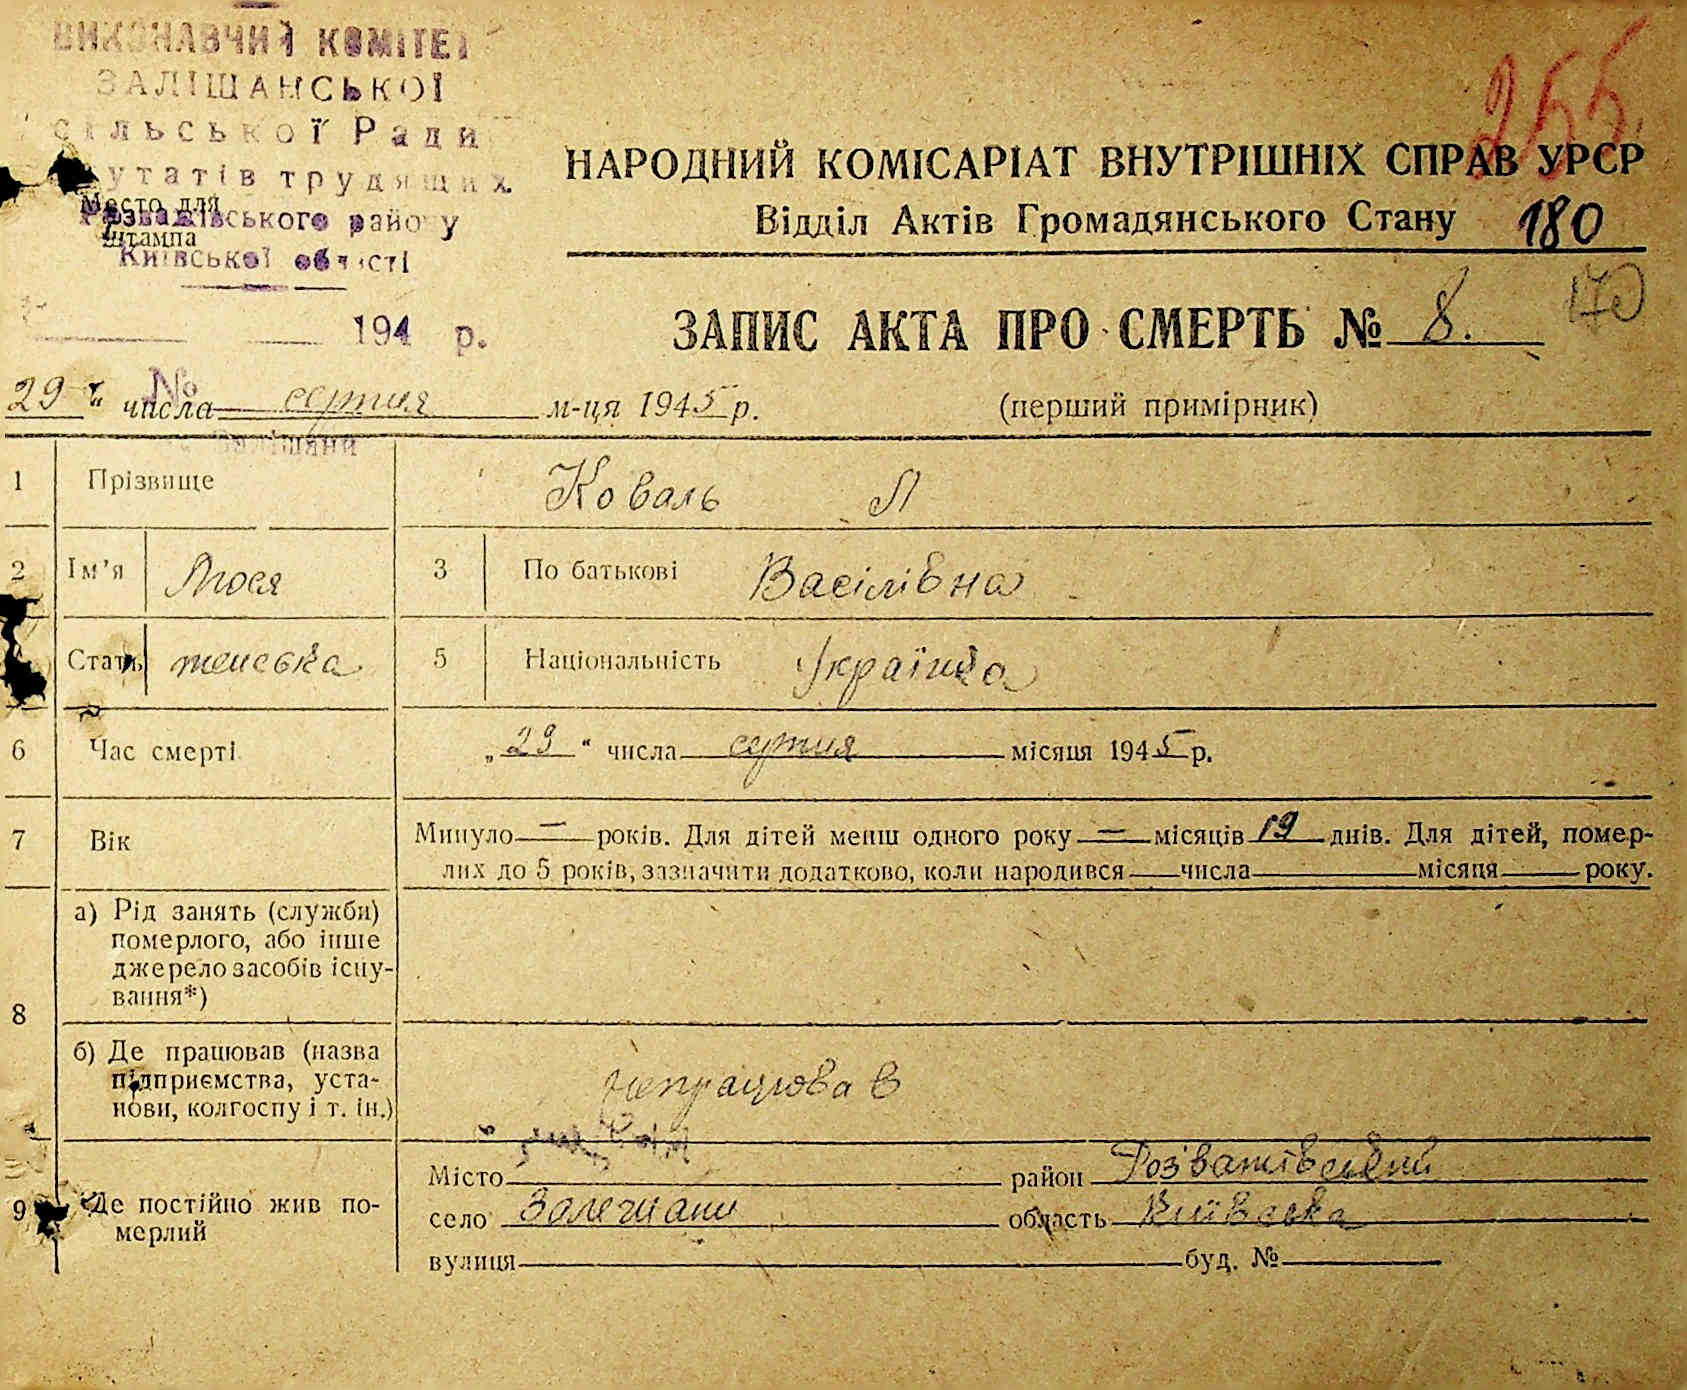 ВИКОНАВЧИЙ КОМІТЕТ
ЗАЛІШАНСЬКОЇ
сільської Ради
утатів трудящих
Место для
Розважівського району
штампа
Київської області
194 р.
№
Залішани
255
НАРОДНИЙ КОМІСАРІАТ ВНУТРІШНІХ СПРАВ УРСР
Відділ Актів Громадянського Стану 180
ЗАПИС АКТА ПРО СМЕРТЬ № 8. 170
29 " числа серпня м-ця 1945 р. (перший примірник)
1 Прізвище Коваль Л
2 Ім'я Люся 3 По батькові Васілівна
Стать женська 5 Національність Українка
6 Час смерті „ 29 " числа серпня місяця 1945 р.
7 Вік Минуло — років. Для дітей менш одного року — місяців 19 днів. Для дітей, помер-
лих до 5 років, зазначити додатково, коли народився числа місяця року.
8 а) Рід занять (служби)
померлого, або інше
джерело засобів існу-
вання*)
б) Де працював (назва
підприємства, уста-
нови, колгоспу і т. ін.) непрацював
9 Де постійно жив по-
мерлий
Місто район Розважівський
село Залешани область Київська
вулиця буд. №